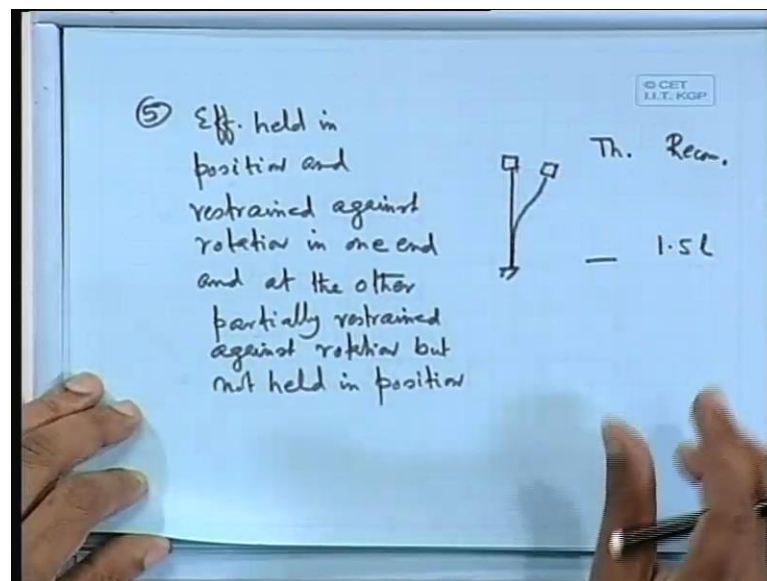 © CET
I.I.T. KGP
⑤ Eff. held in
position and
restrained against
rotation in one end
and at the other
partially restrained
against rotation but
not held in position
Th. Recom.
— 1.5l